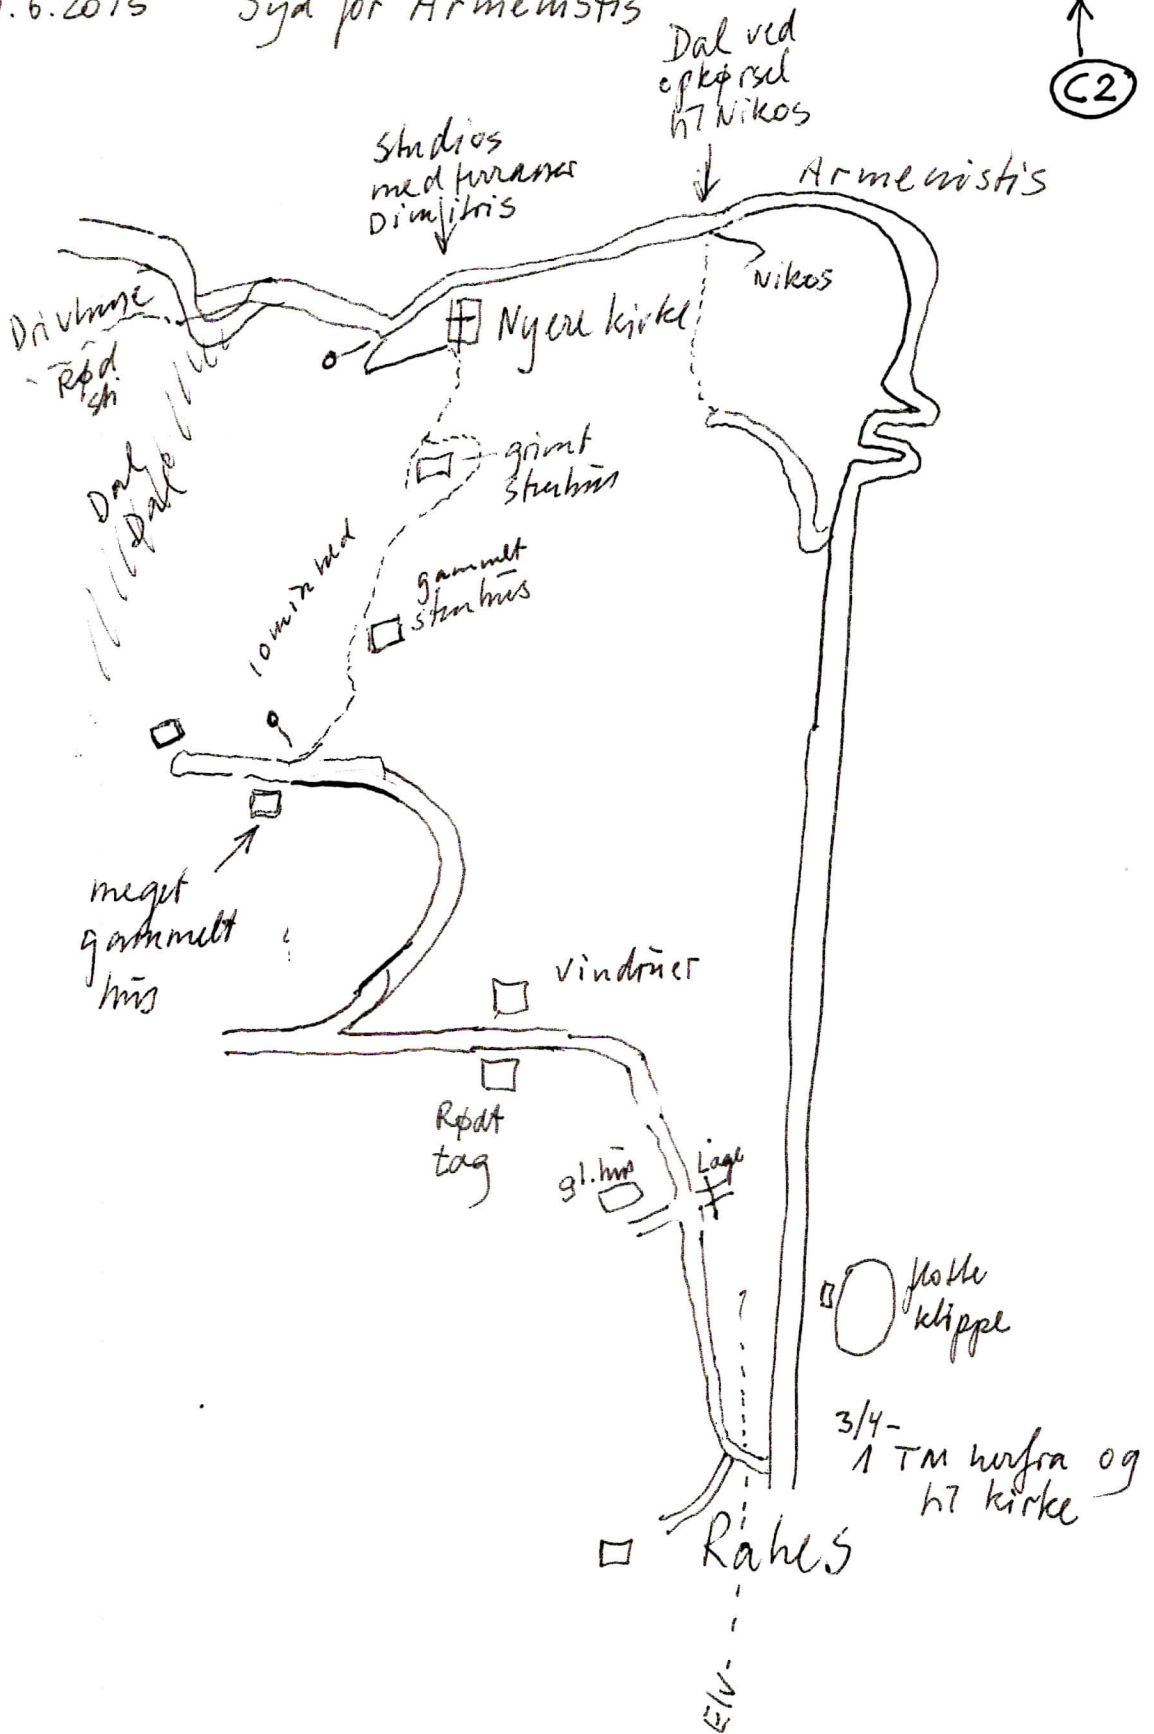 .6.2015 Syd for Armenistis
C2
Dal ved
opkørsel
til Nikos
Studios
med terrasser
Dimitris
Armenistis
Nikos
Drivhuse
Rød
sti
Nyere kirke
Dal
Dal
grimt
stenhus
10 min ned
gammelt
stenhus
meget
gammelt
hus
Vindruer
Rødt
tag
gl. hus
Låge
flotte
klippe
3/4-
1 TM herfra og
til kirke
Rahes
Elv